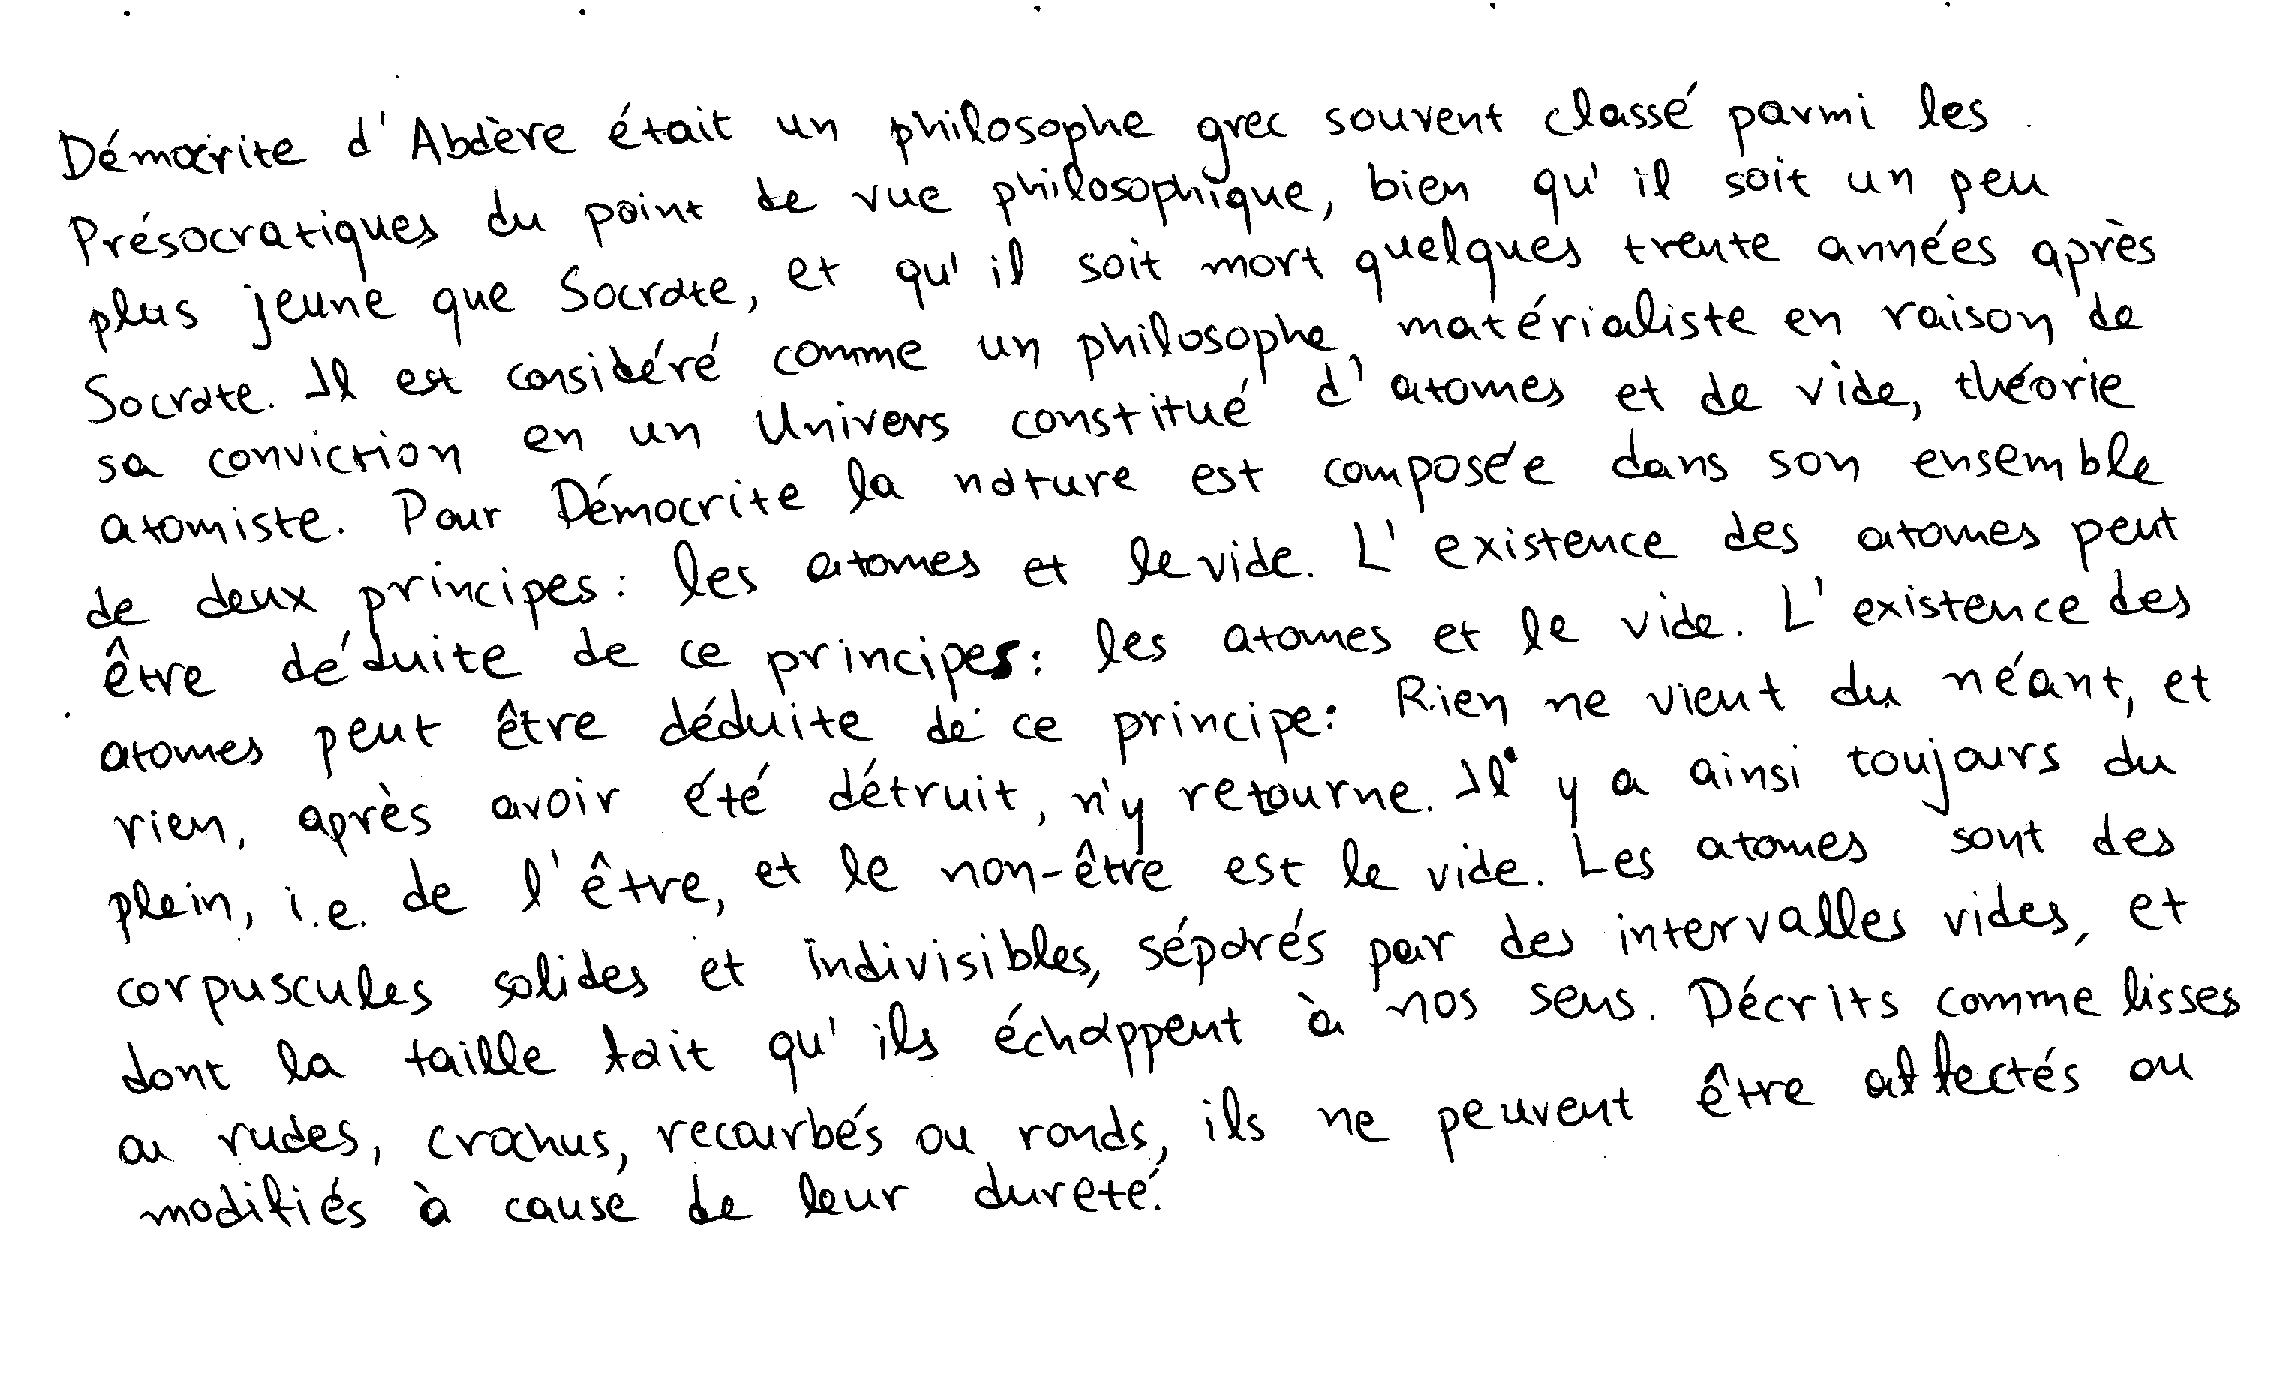 Démocrite d'Abdère était un philosophe grec souvent classé parmi les
Présocratiques du point de vue philosophique, bien qu'il soit un peu
plus jeune que Socrate, et qu'il soit mort quelques trente années après
Socrate. Il est considéré comme un philosophe matérialiste en raison de
sa conviction en un Univers constitué d'atomes et de vide, théorie
atomiste. Pour Démocrite la nature est composée dans son ensemble
de deux principes: les atomes et le vide. L'existence des atomes peut
être déduite de ce principes: les atomes et le vide. L'existence des
atomes peut être déduite de ce principe: Rien ne vient du néant, et
rien, après avoir été détruit, n'y retourne. Il y a ainsi toujours du
plein, i.e. de l'être, et le non-être est le vide. Les atomes sont des
corpuscules solides et indivisibles, séparés par des intervalles vides, et
dont la taille fait qu'ils échappent à nos sens. Décrits comme lisses
ou rudes, crochus, recourbés ou ronds, ils ne peuvent être affectés ou
modifiés à cause de leur dureté.